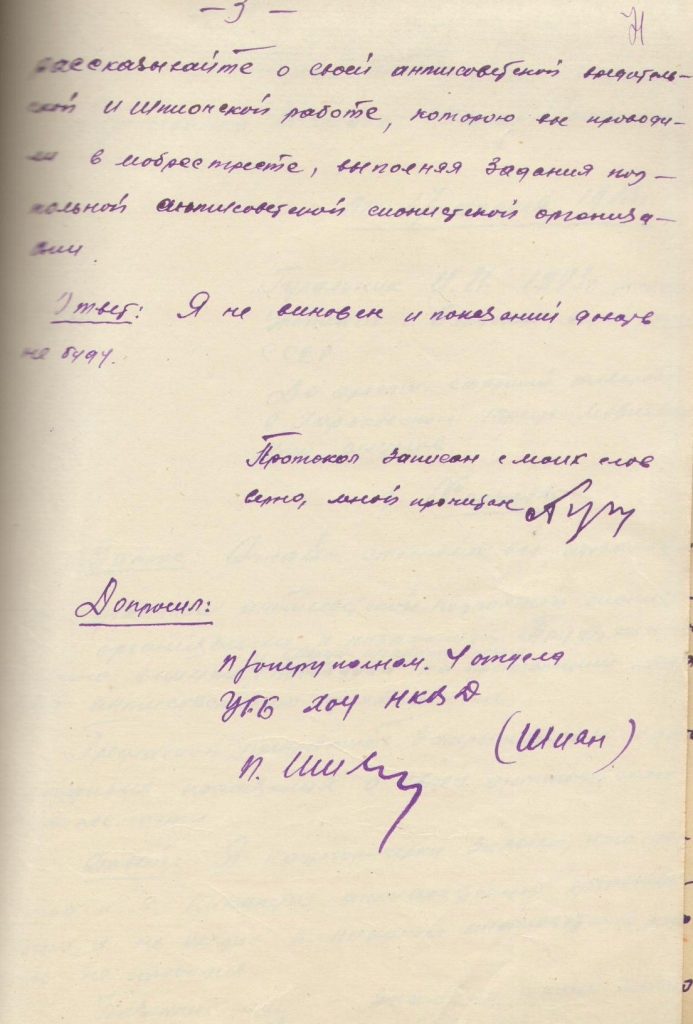 — 3 —
рассказывайте о своей антисоветской вредитель-
ской и шпионской работе, которою вы проводи-
ли в мобрестресте, выполняя задания под-
польной антисоветской сионистской организа-
ции.
Ответ: Я не виновен и показаний давать
не буду.
Протокол записан с моих слов
верно, мной прочитан
Допросил:
П/оперуполном. 4 отдела
УГБ ХОУ НКВД
(Шиян)
п. Шиян